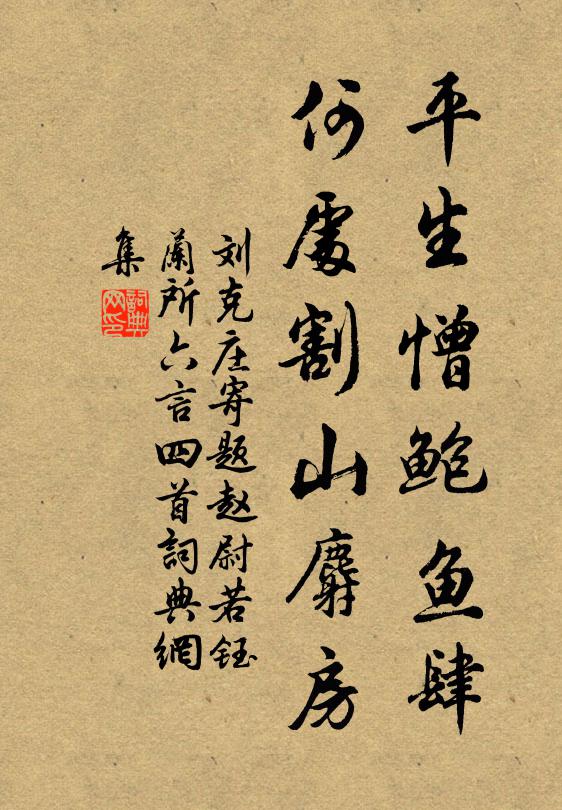 平生憎鮑鱼肆
何處割山麝房
刘克庄寄题赵尉若钰
蘭所六言四首詞典網
集
詞典
网印